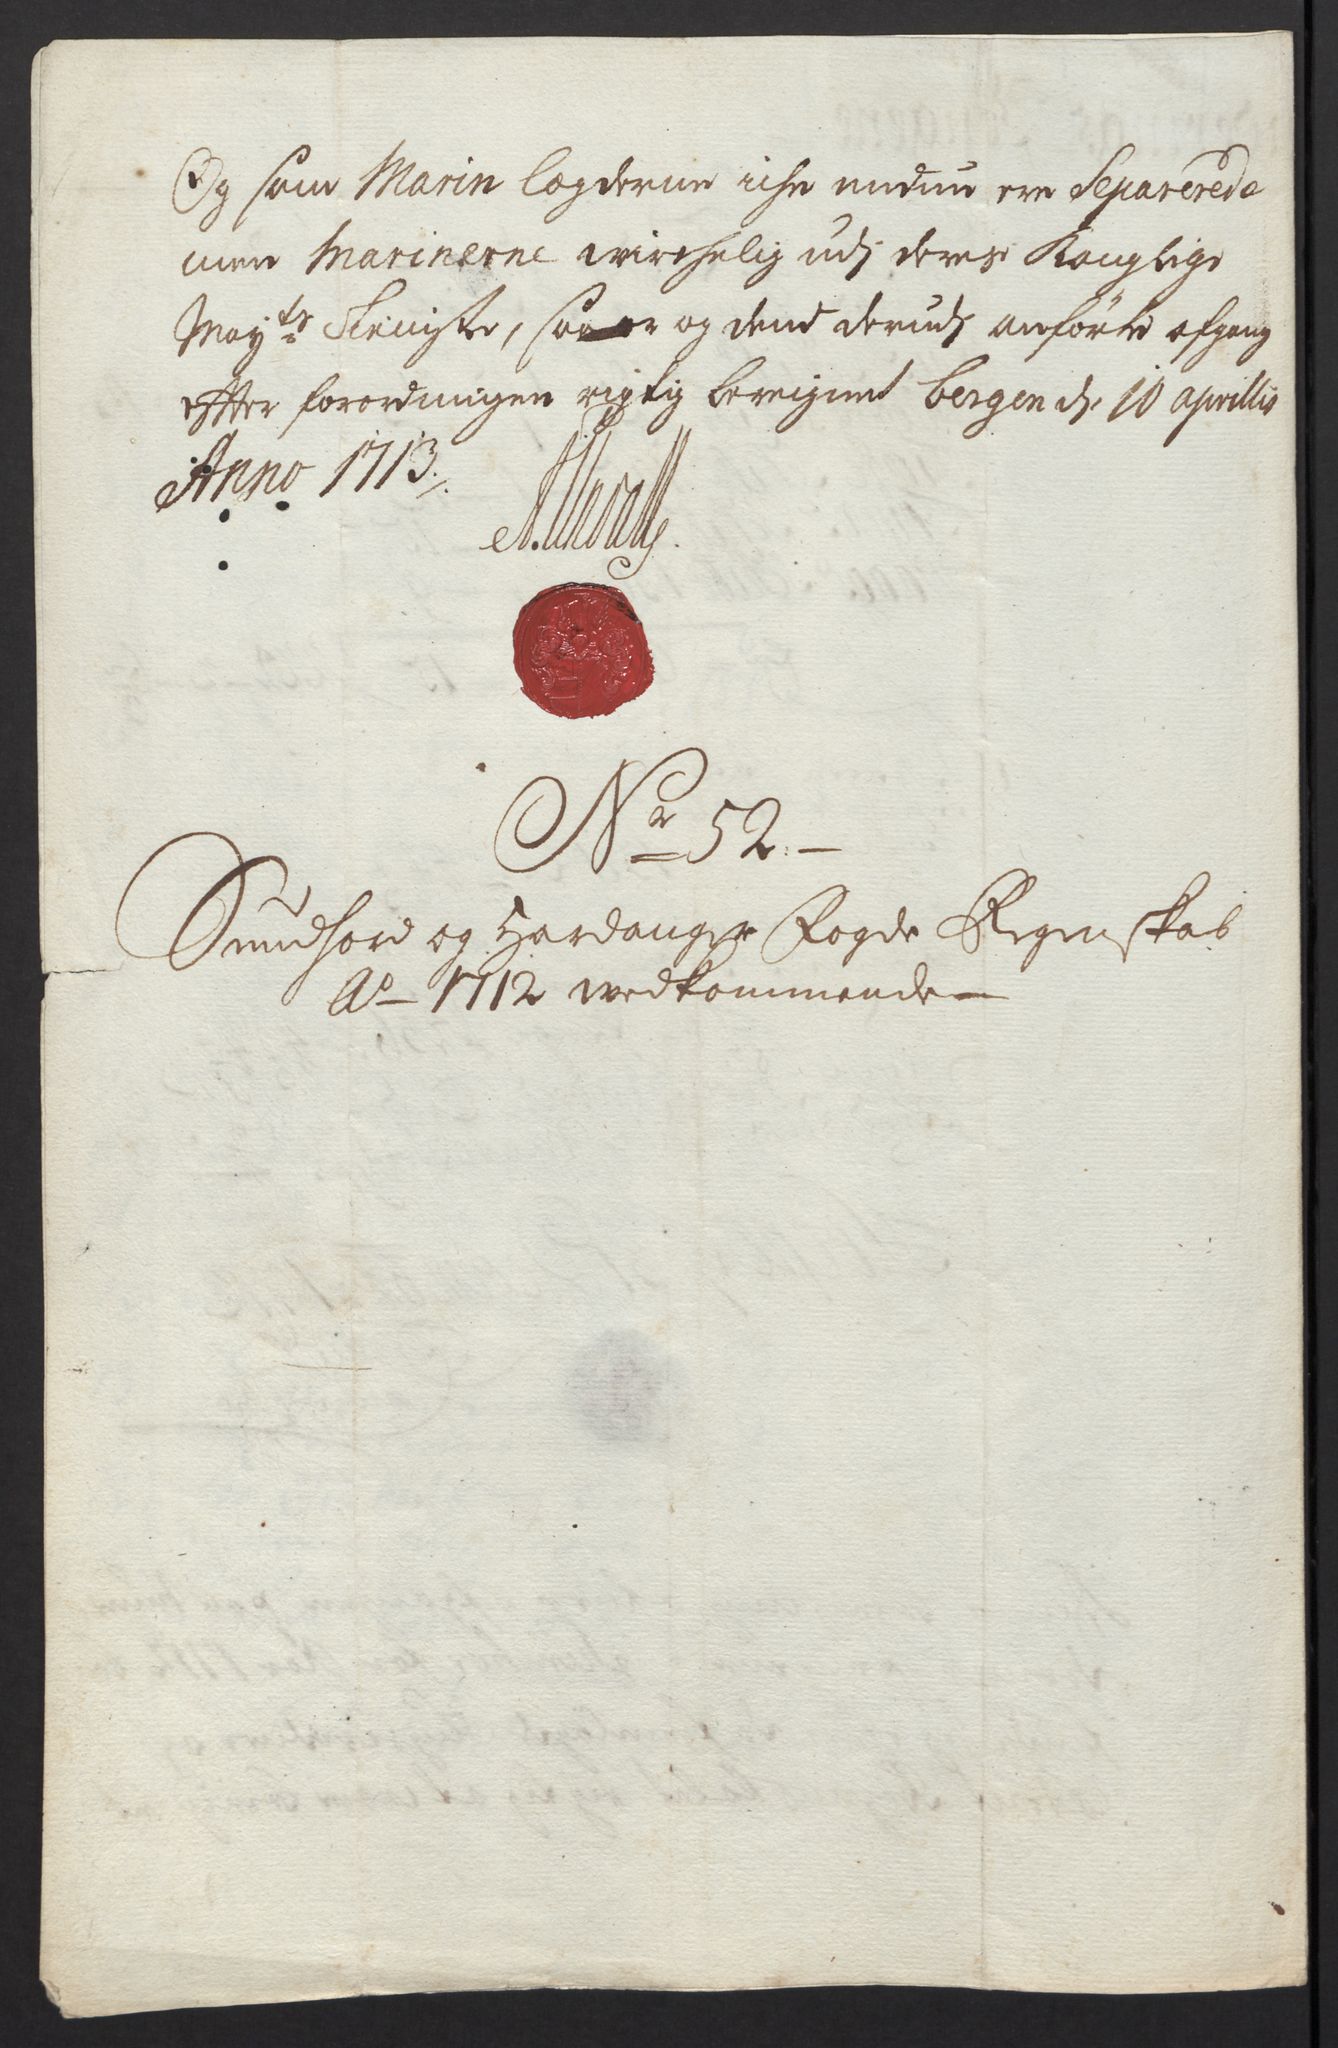 Og som Marin lægderne iche endnu ere Separerede
men Marinerne wirchelig udj deres Konglige
Mayts Tieniste, saa er og dend derudj anförte afgang
efter forordningen rigtig bereignet bergen d. 10 aprillis
Anno 1713.
No 52.
Sundhord og Hardanger Fogde Regenskab
Ao 1712 wedkommende